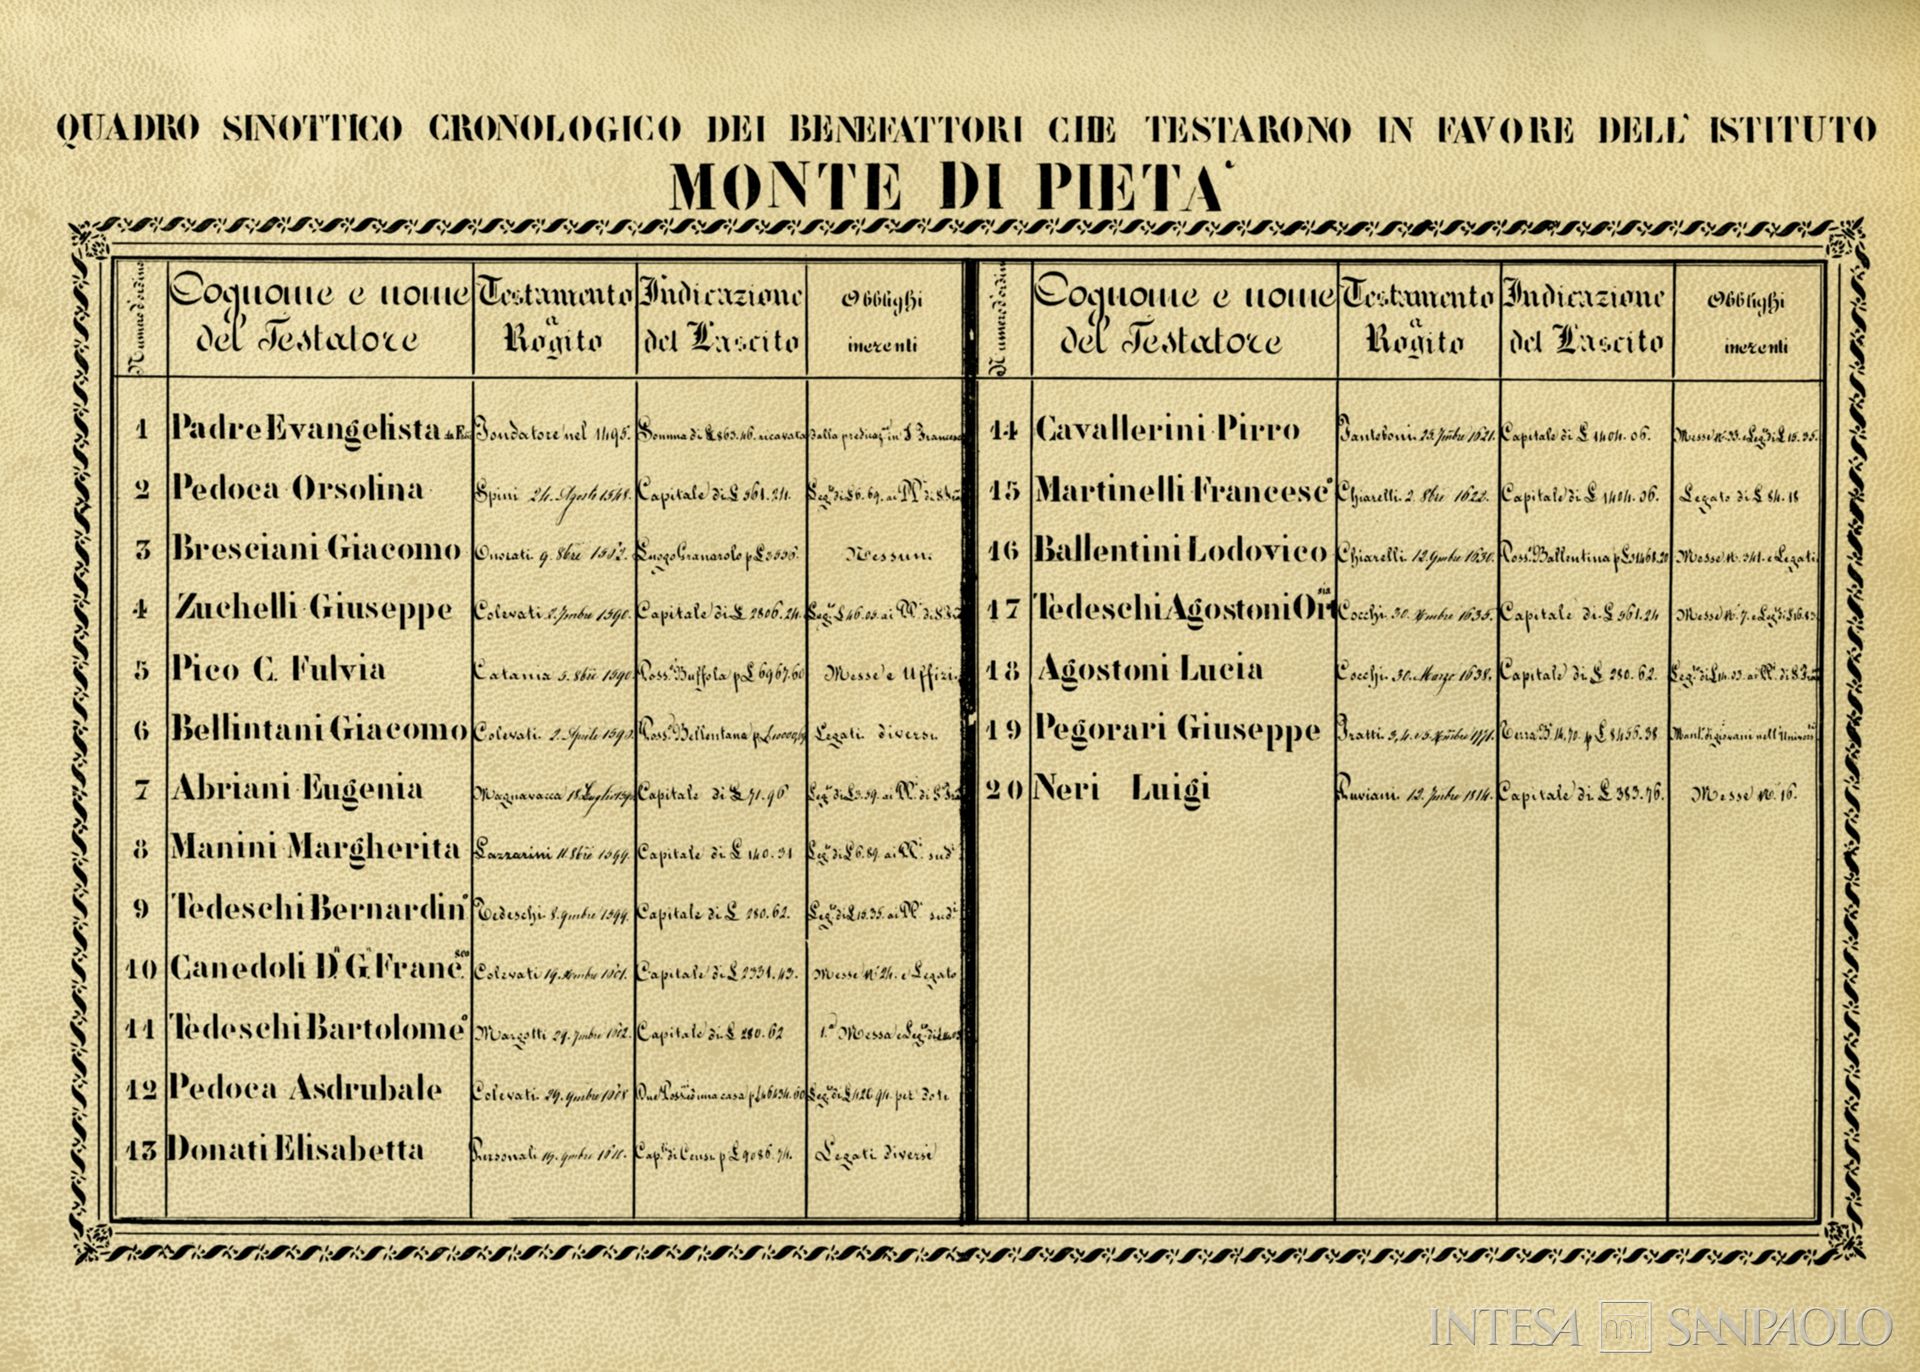 QUADRO SINOTTICO CRONOLOGICO DEI BENEFATTORI CHE TESTARONO IN FAVORE DELL' ISTITUTO
MONTE DI PIETA'
Numero d'ordine Cognome e nome del Testatore Testamento a Rogito Indicazione del Lascito Obblighi inerenti
1 Padre Evangelista Fondatore nel 1495. Somma di £ 863.46. ricavata dalla predicaz. in S. Francesco
2 Pedoca Orsolina Spini 24. Agosto 1548. Capitale di £ 561.24. Leg.º di £ 6.69. ai
3 Bresciani Giacomo Onorati 9. 8bre Luogo Granarolo p £ 3556. Nessun.
4 Zuchelli Giuseppe Colevati 2. 7mbre 1590. Capitale di £ 2806.24. Leg.º £ 46.05. ai
5 Pico C. Fulvia Catania 5. 8bre 1590. Poss.e Buffola p £ 6967.60 Messe e Uffizi.
6 Bellintani Giacomo Colevati 2. Aprile Poss.e Bellentana p Legati diversi.
7 Abriani Eugenia Magnavacca 18. Luglio Capitale di £ 71.96 Leg.º di £ 3.59. ai
8 Manini Margherita Lazzarini 11. 8bre 1599. Capitale di £ 140.31 Leg.º di £ 6.89. ai sud.i
9 Tedeschi Bernardin.º Tedeschi 8. 9mbre 1599. Capitale di £ 280.62. Leg.º di £ 15.35. ai sud.i
10 Canedoli D.n G. Franc.sco Colevati 19. Capitale di £ 2331.43. Messe Nº 24. e Legato
11 Tedeschi Bartolome.º Margotti 29. 7mbre Capitale di £ 280.62 1.a Messa e Leg.º di
12 Pedoca Asdrubale Colevati 29. 9mbre Due Poss.i ed una casa p £ Leg.º di per Dote
13 Donati Elisabetta 9mbre Cap.li di Censi p £ 9086.74. Legati diversi
Numero d'ordine Cognome e nome del Testatore Testamento a Rogito Indicazione del Lascito Obblighi inerenti
14 Cavallerini Pirro 25. 7mbre 1621. Capitale di £ 1404.06. Messe Nº 33. e Leg.º di £ 15.35.
15 Martinelli Francesc.º Chiarelli 2. 8bre 1622. Capitale di £ 1404.36. Legato di £ 84.18
16 Ballentini Lodovico Chiarelli 12. 9mbre 1630. Poss.e Ballentina p £ 31461.20 Messe Nº 341. e Legati
17 Tedeschi Agostoni Cocchi 30. 1635. Capitale di £ 561.24 Messe Nº 7. e Leg.º di £
18 Agostoni Lucia Cocchi 30. Marzo 1638. Capitale di £ 280.62. Leg.º di £ 14.03. ai
19 Pegorari Giuseppe Fratti 3, 4. e 5. 1771. Terra p £ 8456.38 Mant.º di giovani nell'
20 Neri Luigi Ruviani 12. 7mbre 1814. Capitale di £ 383.76. Messe Nº 16.
INTESA SANPAOLO